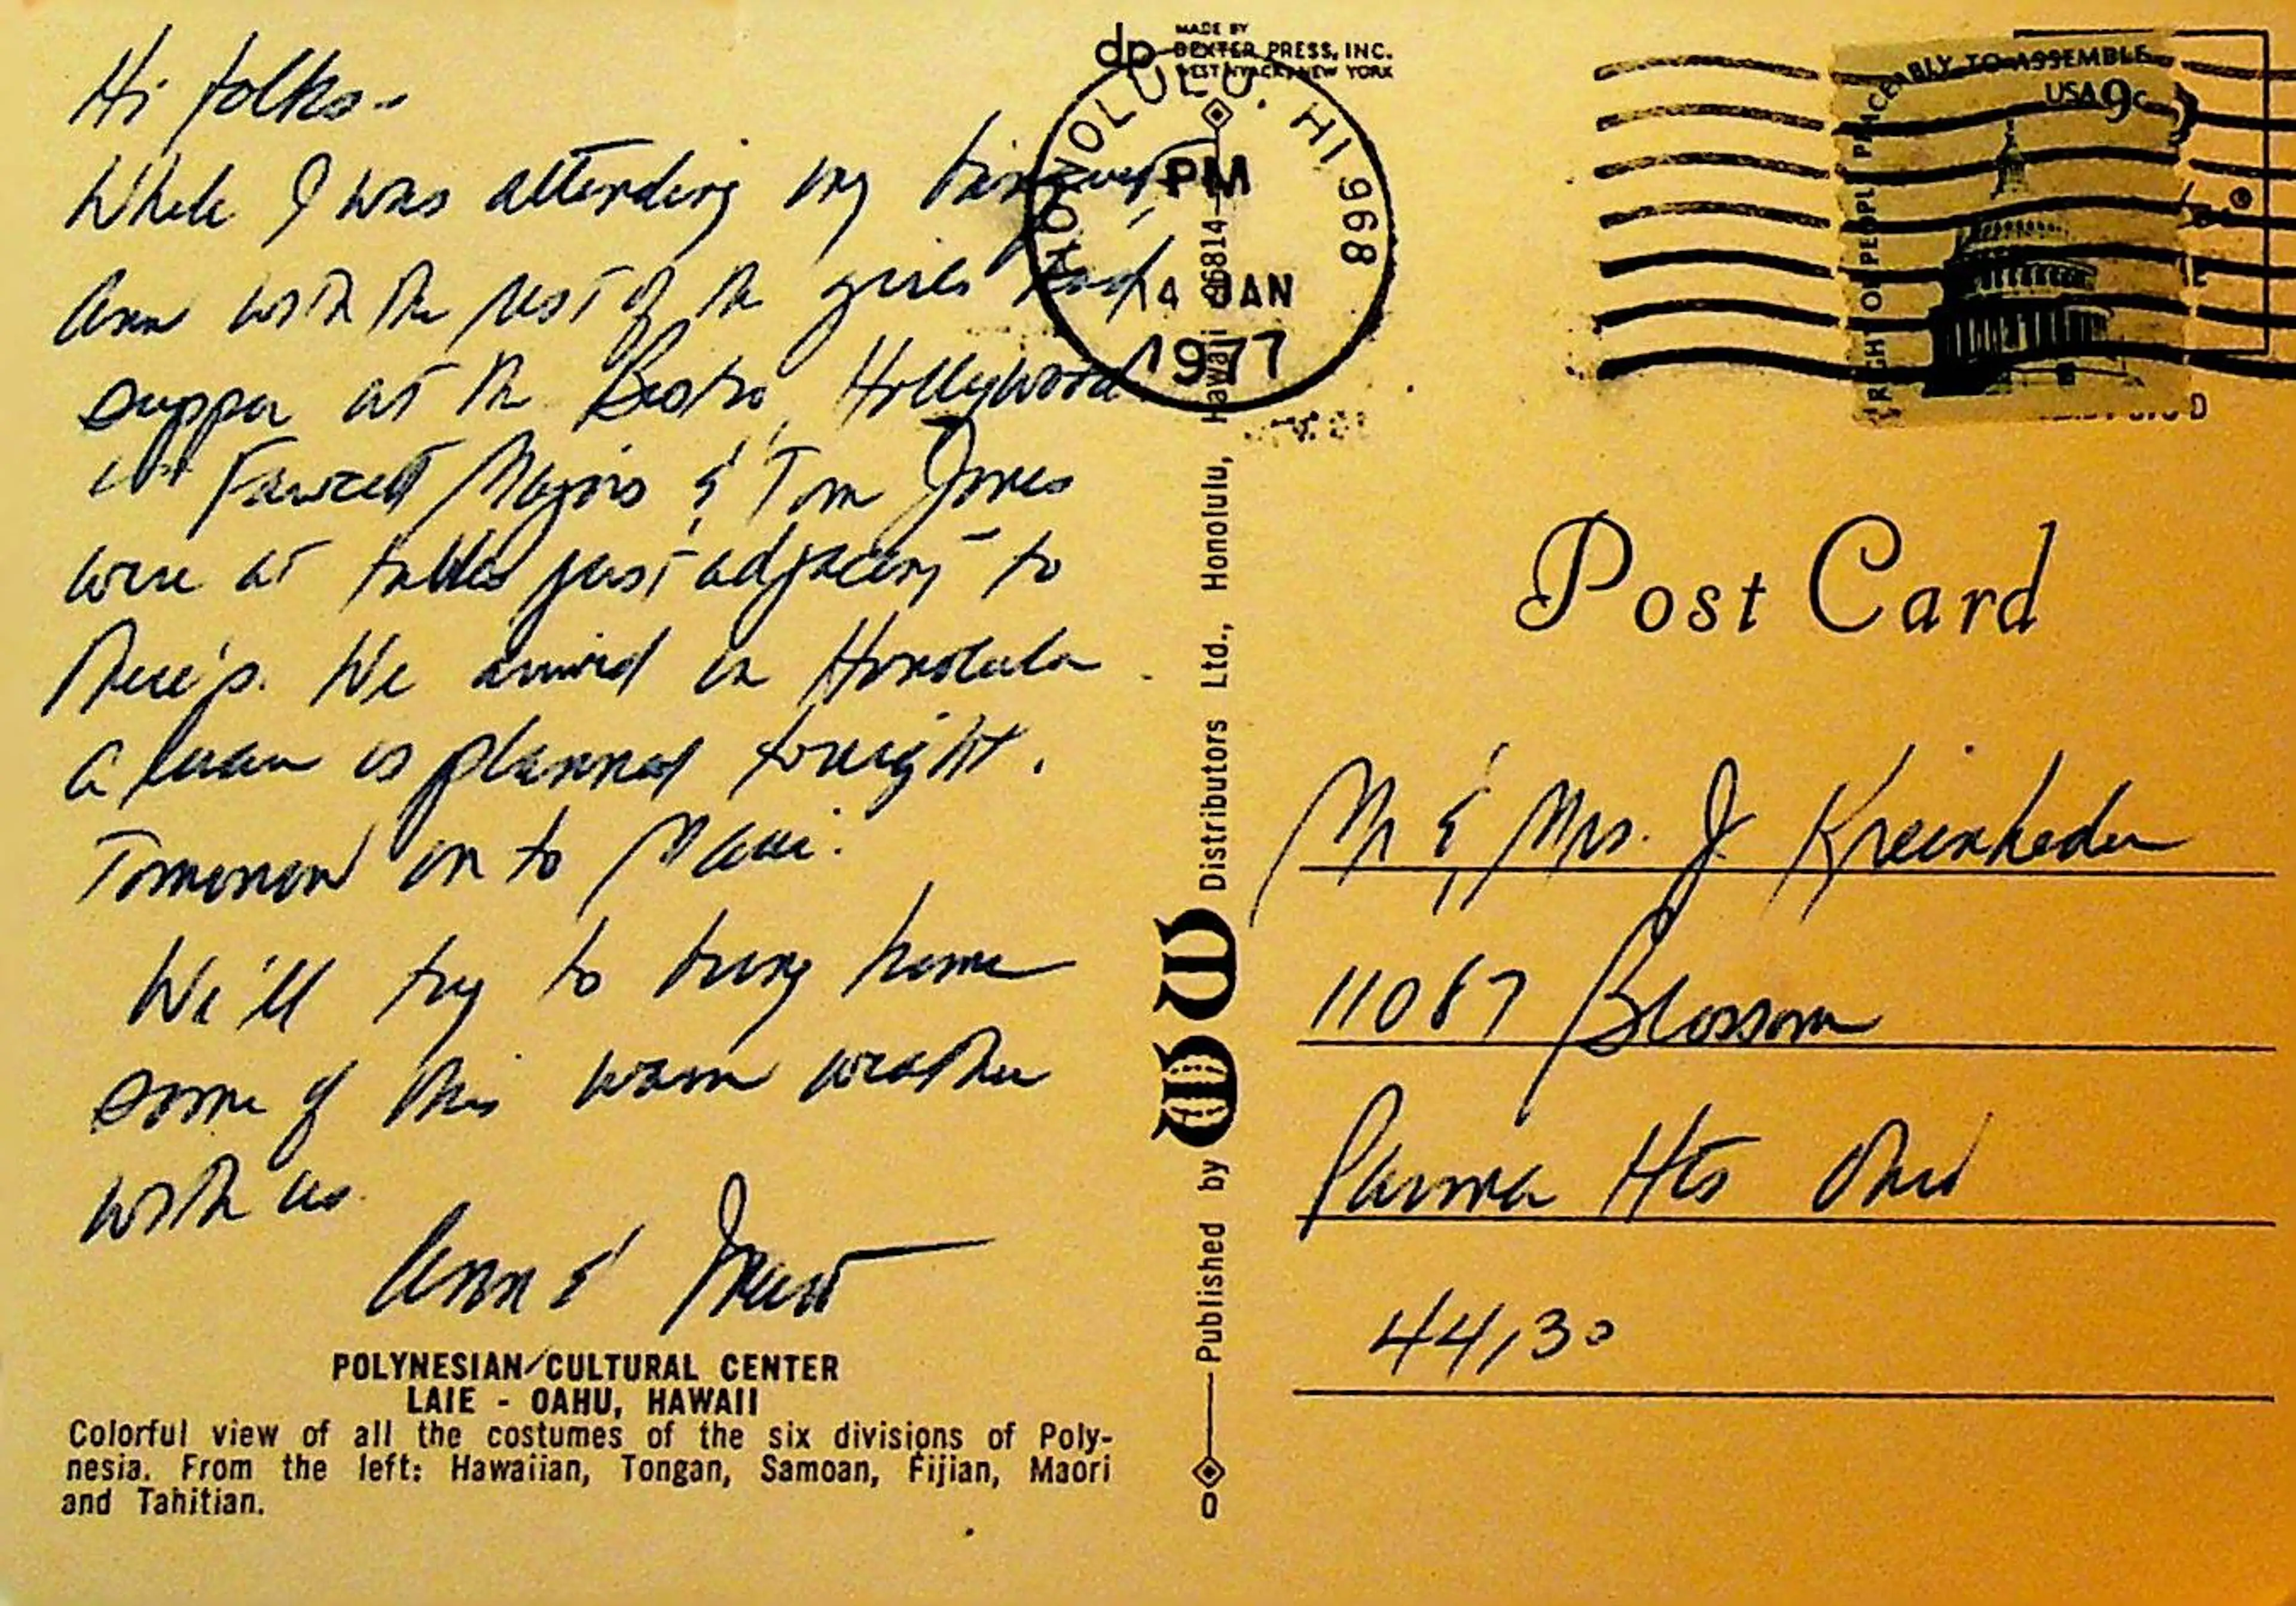 Hi folks-
While I was attending my banquet,
Ann with the rest of the girls had
supper at the Bistro, Hollywood
Fawcett Majors & Tom Jones
were at tables just adjacent to
theirs. We arrived in Honolulu
a luau is planned tonight.
Tomorrow on to Maui.
We'll try to bring home
some of this warm weather
with us.
Ann &
POLYNESIAN CULTURAL CENTER
LAIE - OAHU, HAWAII
Colorful view of all the costumes of the six divisions of Poly-
nesia. From the left: Hawaiian, Tongan, Samoan, Fijian, Maori
and Tahitian.
dp
MADE BY
DEXTER PRESS, INC.
WEST NYACK, NEW YORK
HONOLULU, HI 968
PM
14 JAN
1977
Published by Distributors Ltd., Honolulu, Hawaii 96814
RIGHT OF PEOPLE PEACEABLY TO ASSEMBLE
USA 9c
Post Card
Mr & Mrs. J Kreinheder
11067 Blossom
Parma Hts Ohio
44130